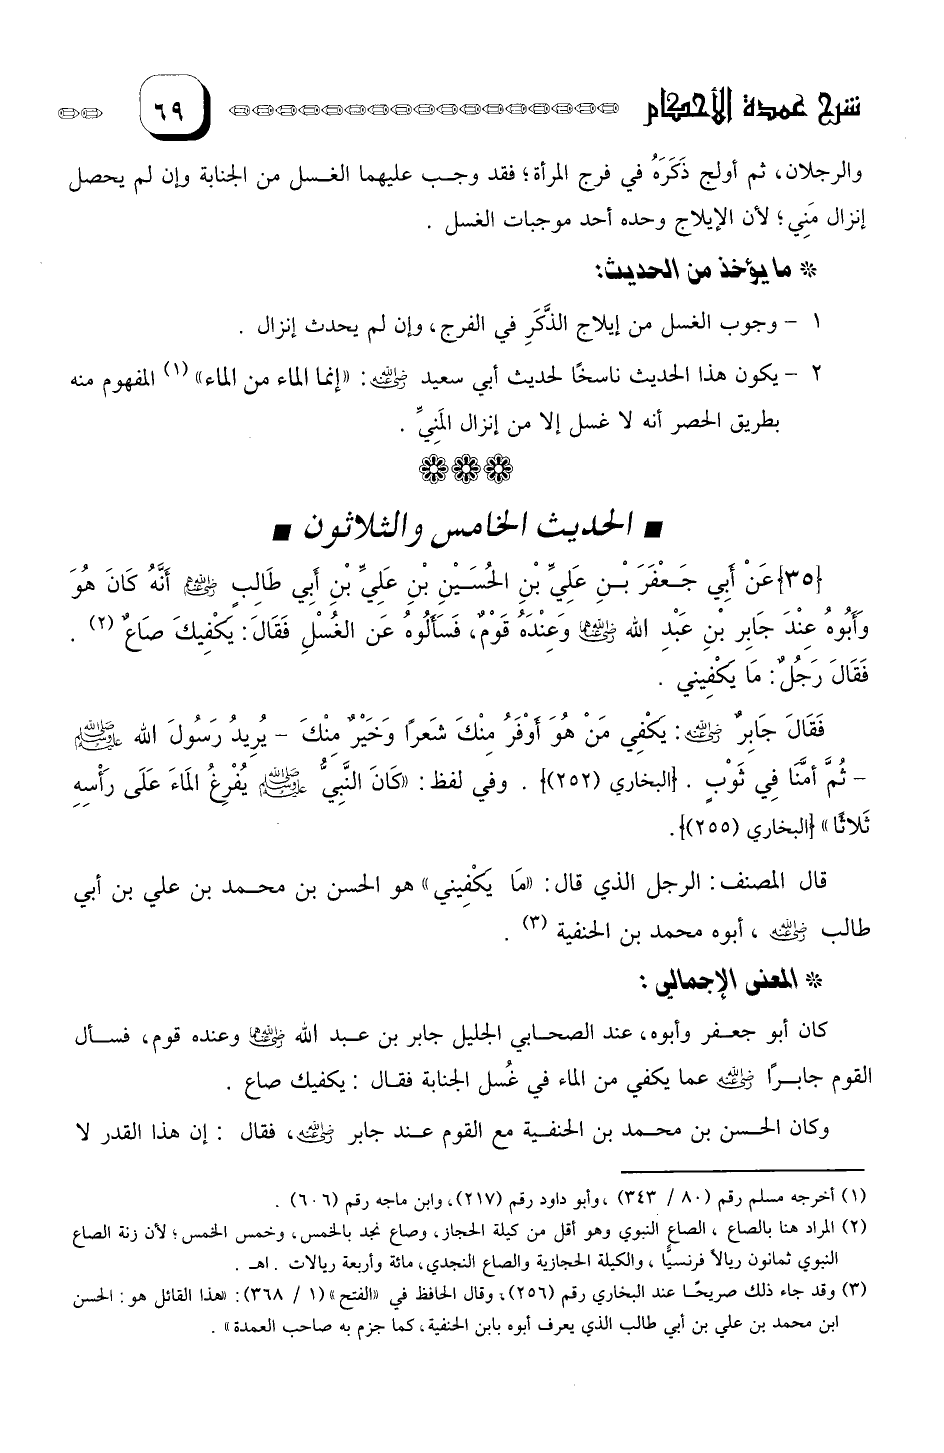 شرح عمدة الأحكام ٦٩
والرجلان، ثم أولج ذَكَرَهُ في فرج المرأة؛ فقد وجب عليهما الغسل من الجنابة وإن لم يحصل
إنزال مَنِي؛ لأن الإيلاج وحده أحد موجبات الغسل .
* ما يؤخذ من الحديث:
١ - وجوب الغسل من إيلاج الذَّكَرِ في الفرج، وإن لم يحدث إنزال .
٢ - يكون هذا الحديث ناسخًا لحديث أبي سعيد رضي الله عنه: «إنما الماء من الماء» (١) المفهوم منه
بطريق الحصر أنه لا غسل إلا من إنزال المَنيِّ .
■ الحديث الخامس والثلاثون ■
{٣٥} عَنْ أَبِي جَعْفَرَ بْنِ عَلِيِّ بْنِ الْحُسَيْنِ بْنِ عَلِيِّ بْنِ أَبِي طَالِبٍ رضي الله عنه أَنَّهُ كَانَ هُوَ
وَأَبُوهُ عِنْدَ جَابِرِ بْنِ عَبْدِ الله رضي الله عنهما وَعِنْدَهُ قَوْمٌ، فَسَأَلُوهُ عَن الغُسْلِ فَقَالَ: يَكْفِيكَ صَاعٌ (٢) .
فَقَالَ رَجُلٌ: مَا يَكْفِيني .
فَقَالَ جَابِرٌ رضي الله عنه: يَكْفِي مَنْ هُوَ أَوْفَرُ مِنْكَ شَعَرًا وَخَيْرٌ مِنْكَ - يُرِيدُ رَسُولَ الله ﷺ
- ثُمَّ أَمَّنَا فِي ثَوْبٍ . {البخاري (٢٥٢)} . وفي لفظ: «كَانَ النَّبِيُّ ﷺ يُفْرِغُ الْمَاءَ عَلَى رَأْسِهِ
ثَلاثًا» {البخاري (٢٥٥)}.
قال المصنف: الرجل الذي قال: «مَا يَكْفِيني» هو الحسن بن محمد بن علي بن أبي
طالب رضي الله عنه، أبوه محمد بن الحنفية (٣) .
* المعنى الإجمالي :
كان أبو جعفر وأبوه، عند الصحابي الجليل جابر بن عبد الله رضي الله عنهما وعنده قوم، فسأل
القوم جابرًا رضي الله عنه عما يكفي من الماء في غُسل الجنابة فقال : يكفيك صاع .
وكان الحسن بن محمد بن الحنفية مع القوم عند جابر رضي الله عنه، فقال : إن هذا القدر لا
(١) أخرجه مسلم رقم (٨٠ / ٣٤٣) ، وأبو داود رقم (٢١٧)، وابن ماجه رقم (٦٠٦) .
(٢) المراد هنا بالصاع ، الصاع النبوي وهو أقل من كيلة الحجاز، وصاع نجد بالخمس، وخمس الخمس؛ لأن زنة الصاع
النبوي ثمانون ريالاً فرنسيًّا ، والكيلة الحجازية والصاع النجدي، مائة وأربعة ريالات . اهـ .
(٣) وقد جاء ذلك صريحًا عند البخاري رقم (٢٥٦)، وقال الحافظ في «الفتح» (١ / ٣٦٨): «هذا القائل هو: الحسن
ابن محمد بن علي بن أبي طالب الذي يعرف أبوه بابن الحنفية، كما جزم به صاحب العمدة» .